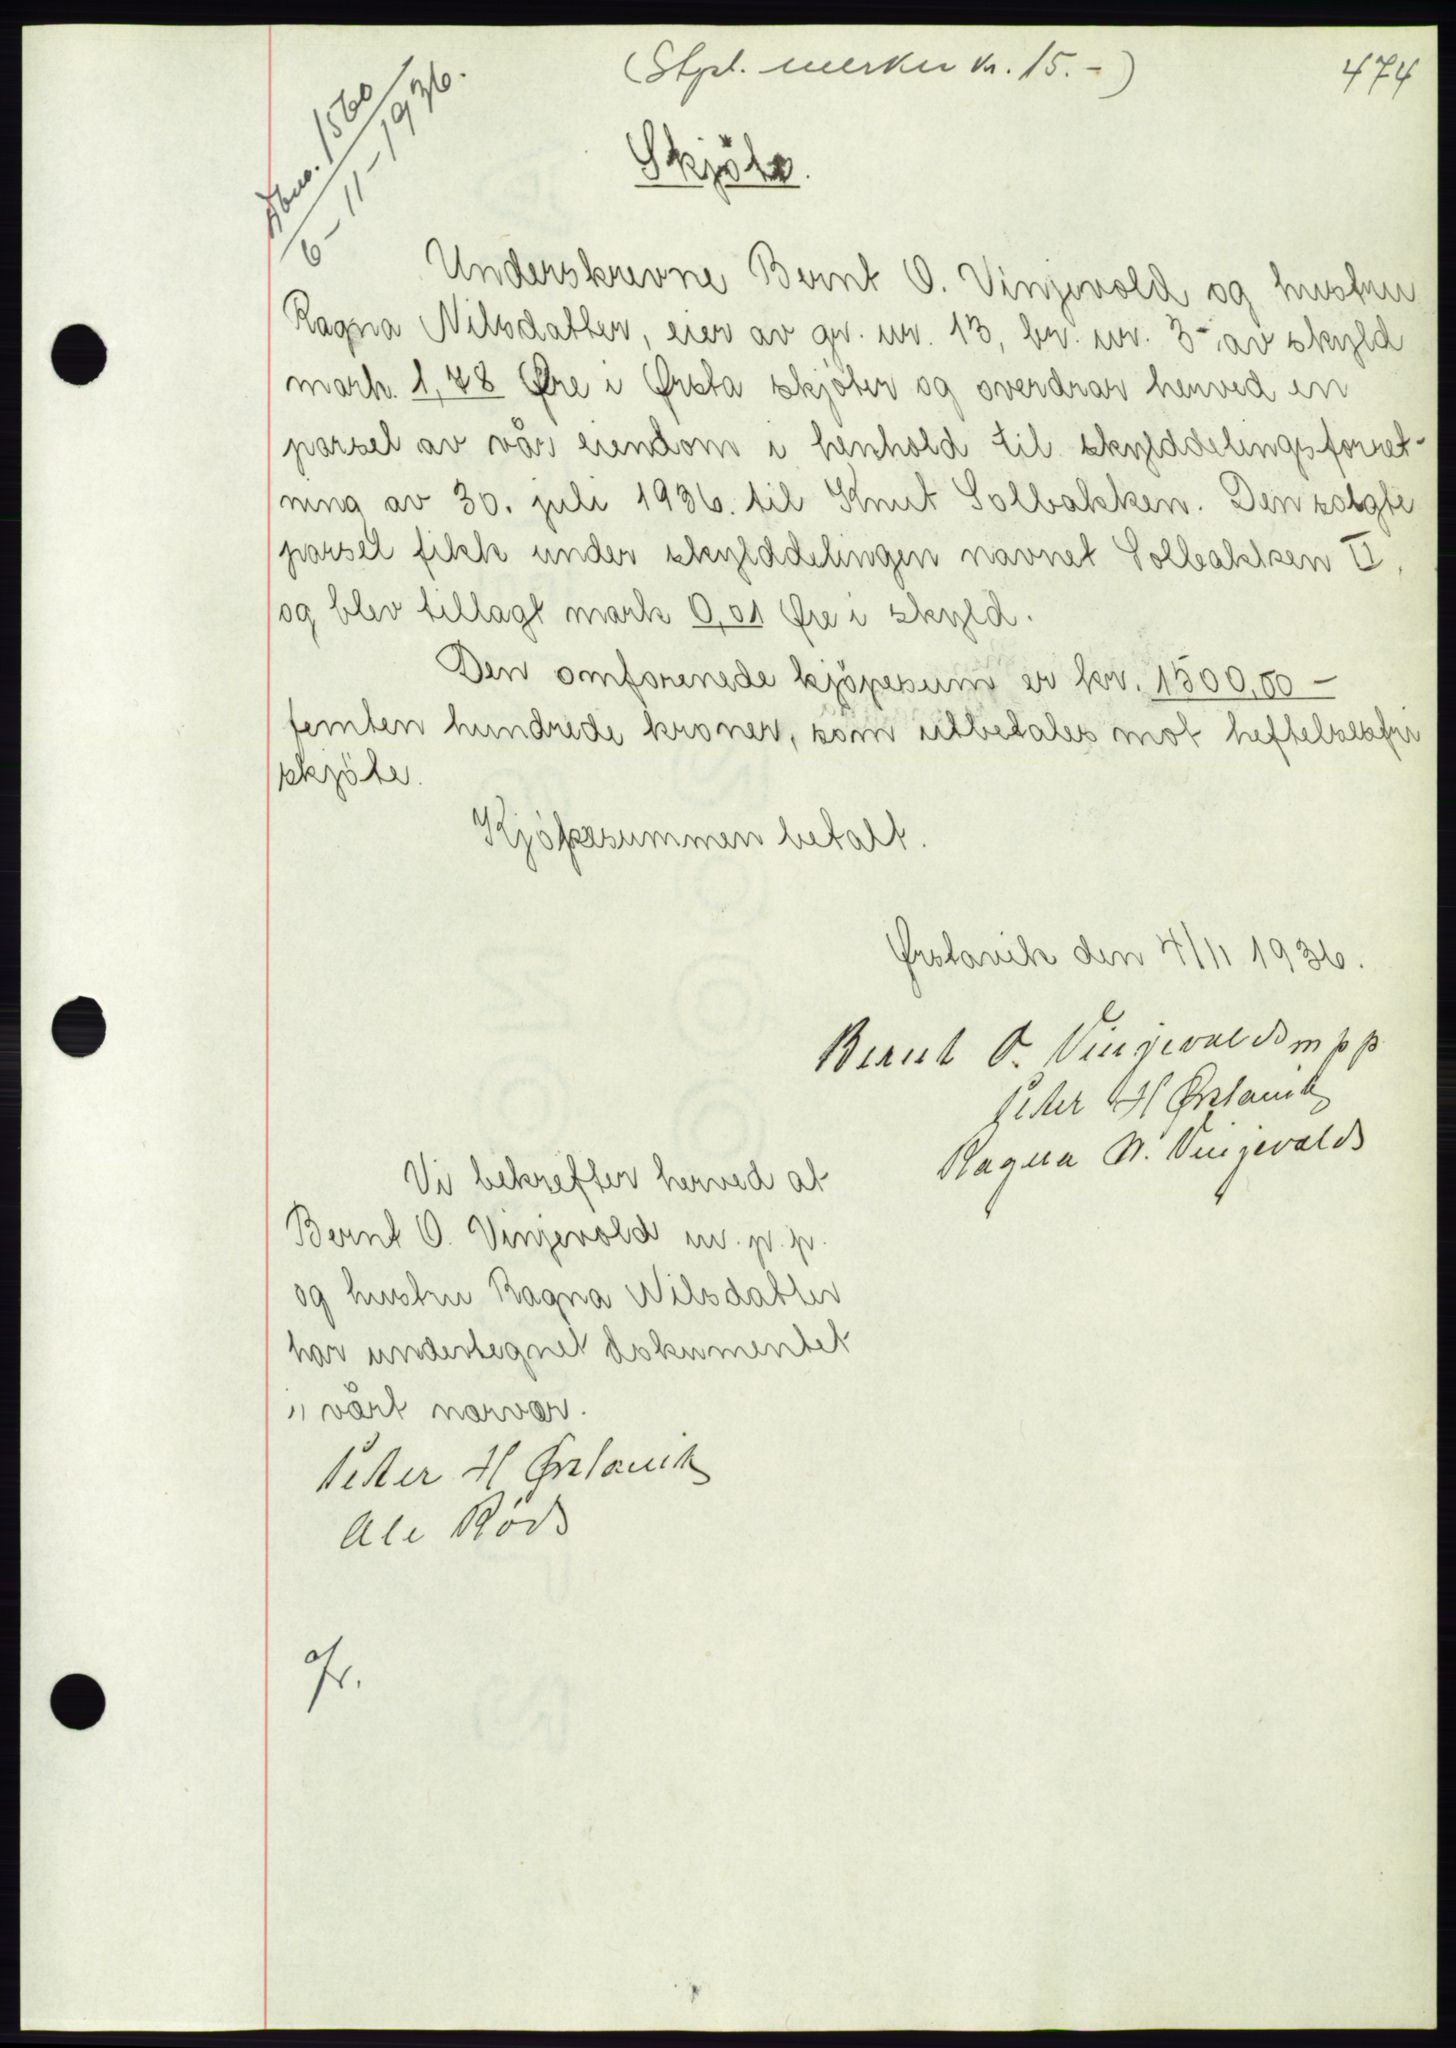 (Stpl. merker kr. 15.-)
474
Dbno. 1560/
6-11-1936.
Skjöte.
Underskrevne Bernt O. Vinjevold og hustru
Ragna Nilsdatter, eier av gr. nr. 13, br. nr. 3- av skyld
mark. 1,78 Øre i Ørsta skjöter og overdrar herved en
parsel av vår eiendom i henhold til skylddelingsforret-
ning av 30. juli 1936. til Knut Solbakken. Den solgte
parsel fikk under skylddelingen navnet Solbakken II,
og blev tillagt mark 0,01 Øre i skyld.
Den omforenede kjöpesum er kr. 1500,00 –
femten hundrede kroner, som utbetales mot heftelsesfri
skjöte.
Kjöpesummen betalt.
Ørstavik den 4/11 1936.
Bernt O. Vinjevold m p p
Peter H Ørstavik
Ragna N. Vinjevold
Vi bekrefter herved at
Bernt O. Vinjevold m. p. p.
og hustru Ragna Nilsdatter
har undertegnet dokumentet
i vårt nærvær.
Peter H Ørstavik
Ole Röd